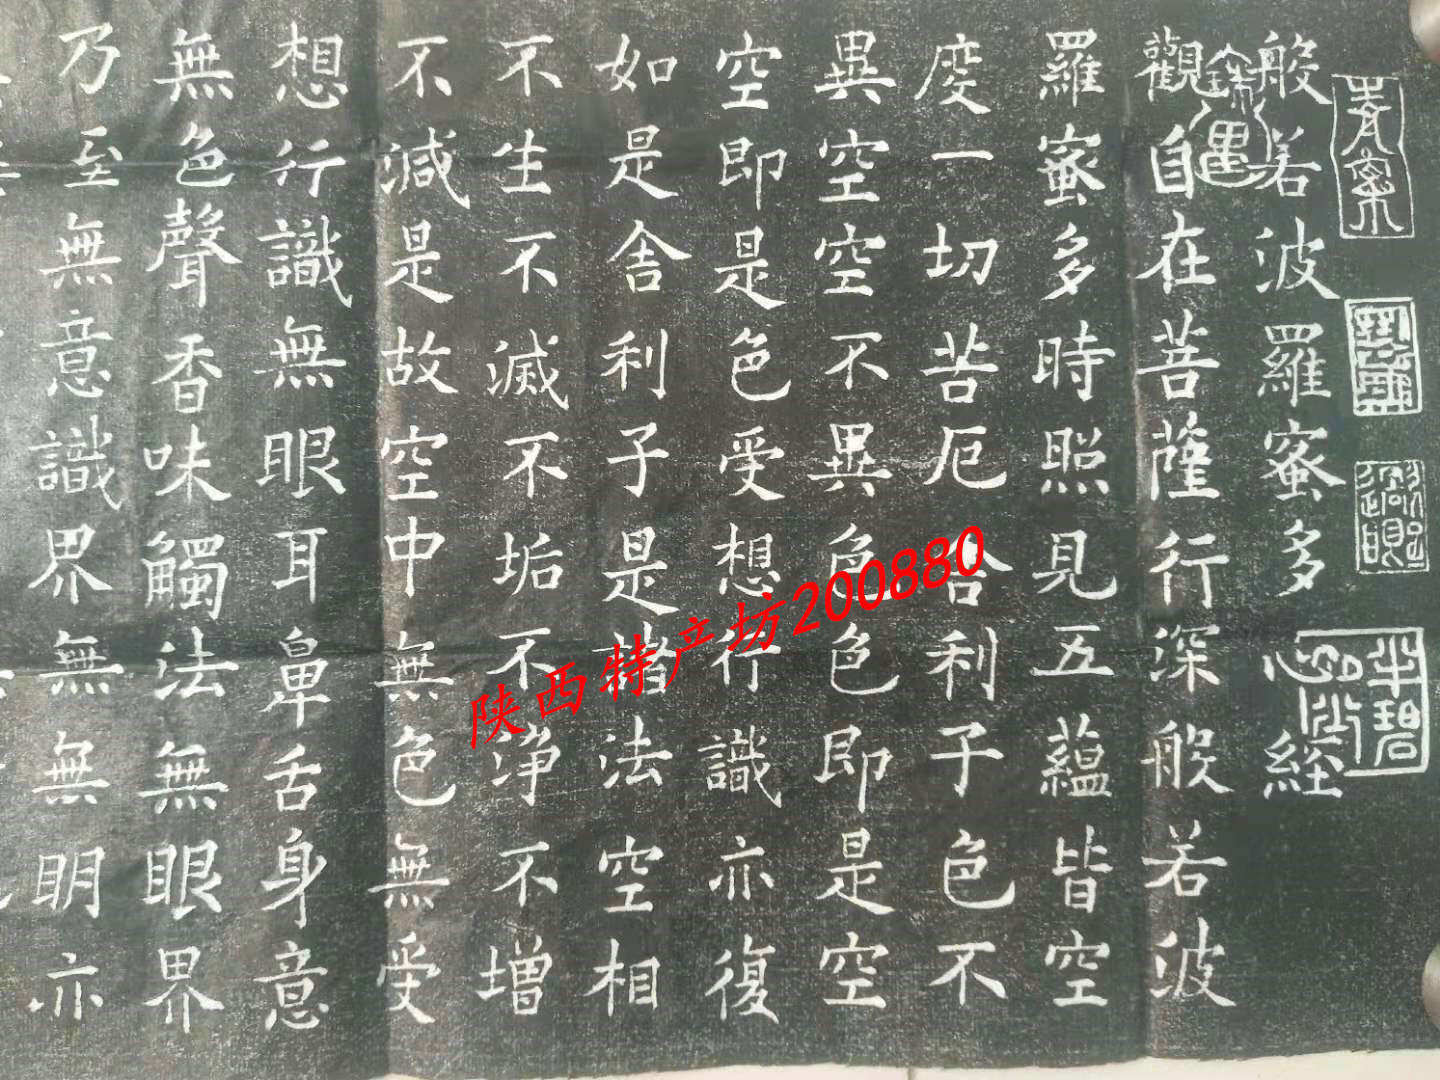 般若波羅蜜多心経
觀自在菩薩行深般若波
羅蜜多時照見五蘊皆空
度一切苦厄舍利子色不
異空空不異色色即是空
空即是色受想行識亦復
如是舍利子是諸法空相
不生不滅不垢不浄不增
不減是故空中無色無受
想行識無眼耳鼻舌身意
無色聲香味觸法無眼界
乃至無意識界無無明亦
陕西特产坊200880